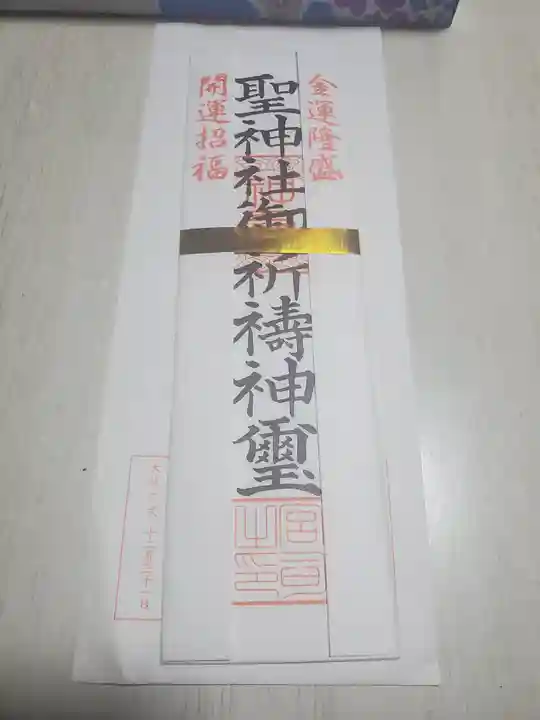 金運隆盛
聖神社御祈禱神璽
開運招福
宮司之印
十二月三十一日